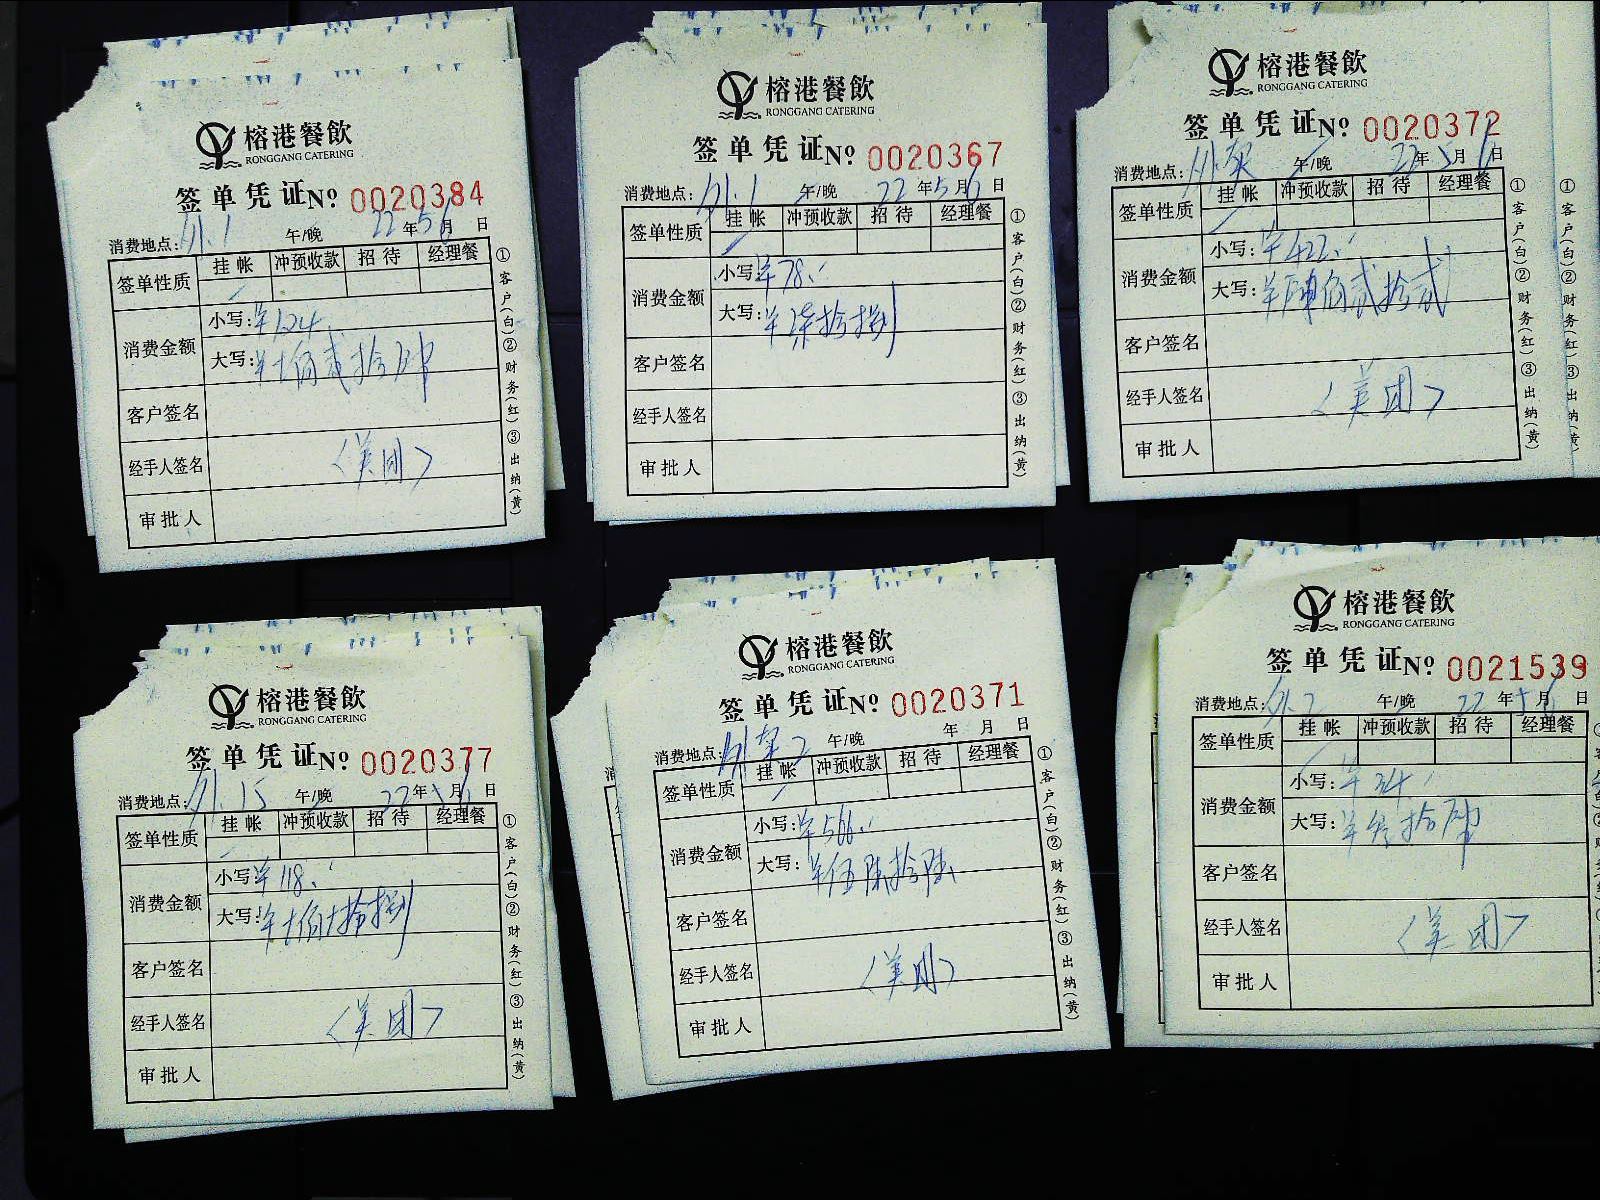 榕港餐飲
RONGGANG CATERING
签单凭证 Nº 0020384
消费地点: 外.1 午/晚 22年5月6日
签单性质 挂帐 冲预收款 招待 经理餐
消费金额
小写: ¥124
大写: ¥壹佰贰拾肆
客户签名
经手人签名 〈美团〉
审批人
①客户(白)②财务(红)③出纳(黄)
榕港餐飲
RONGGANG CATERING
签单凭证 Nº 0020367
消费地点: 外.1 午/晚 22年5月6日
签单性质 挂帐 冲预收款 招待 经理餐
消费金额
小写: ¥78.
大写: ¥柒拾捌
客户签名
经手人签名
审批人
①客户(白)②财务(红)③出纳(黄)
榕港餐飲
RONGGANG CATERING
签单凭证 Nº 0020372
消费地点: 午/晚 22年5月6日
签单性质 挂帐 冲预收款 招待 经理餐
消费金额
小写: ¥422.
大写: ¥肆佰贰拾贰
客户签名
经手人签名 〈美团〉
审批人
①客户(白)②财务(红)③出纳(黄)
①客户(白)②财务(红)③出纳(黄)
榕港餐飲
RONGGANG CATERING
签单凭证 Nº 0020377
消费地点: 外.15 午/晚 22年5月6日
签单性质 挂帐 冲预收款 招待 经理餐
消费金额
小写: ¥118.
大写: ¥壹佰壹拾捌
客户签名
经手人签名 〈美团〉
审批人
①客户(白)②财务(红)③出纳(黄)
榕港餐飲
RONGGANG CATERING
签单凭证 Nº 0020371
消费地点: 午/晚 年 月 日
签单性质 挂帐 冲预收款 招待 经理餐
消费金额
小写: ¥566.
大写: ¥伍陆拾陆
客户签名
经手人签名 〈美团〉
审批人
①客户(白)②财务(红)③出纳(黄)
榕港餐飲
RONGGANG CATERING
签单凭证 Nº 0021539
消费地点: 外.2 午/晚 22年5月6日
签单性质 挂帐 冲预收款 招待 经理餐
消费金额
小写: ¥34.
大写: ¥叁拾肆
客户签名
经手人签名 〈美团〉
审批人